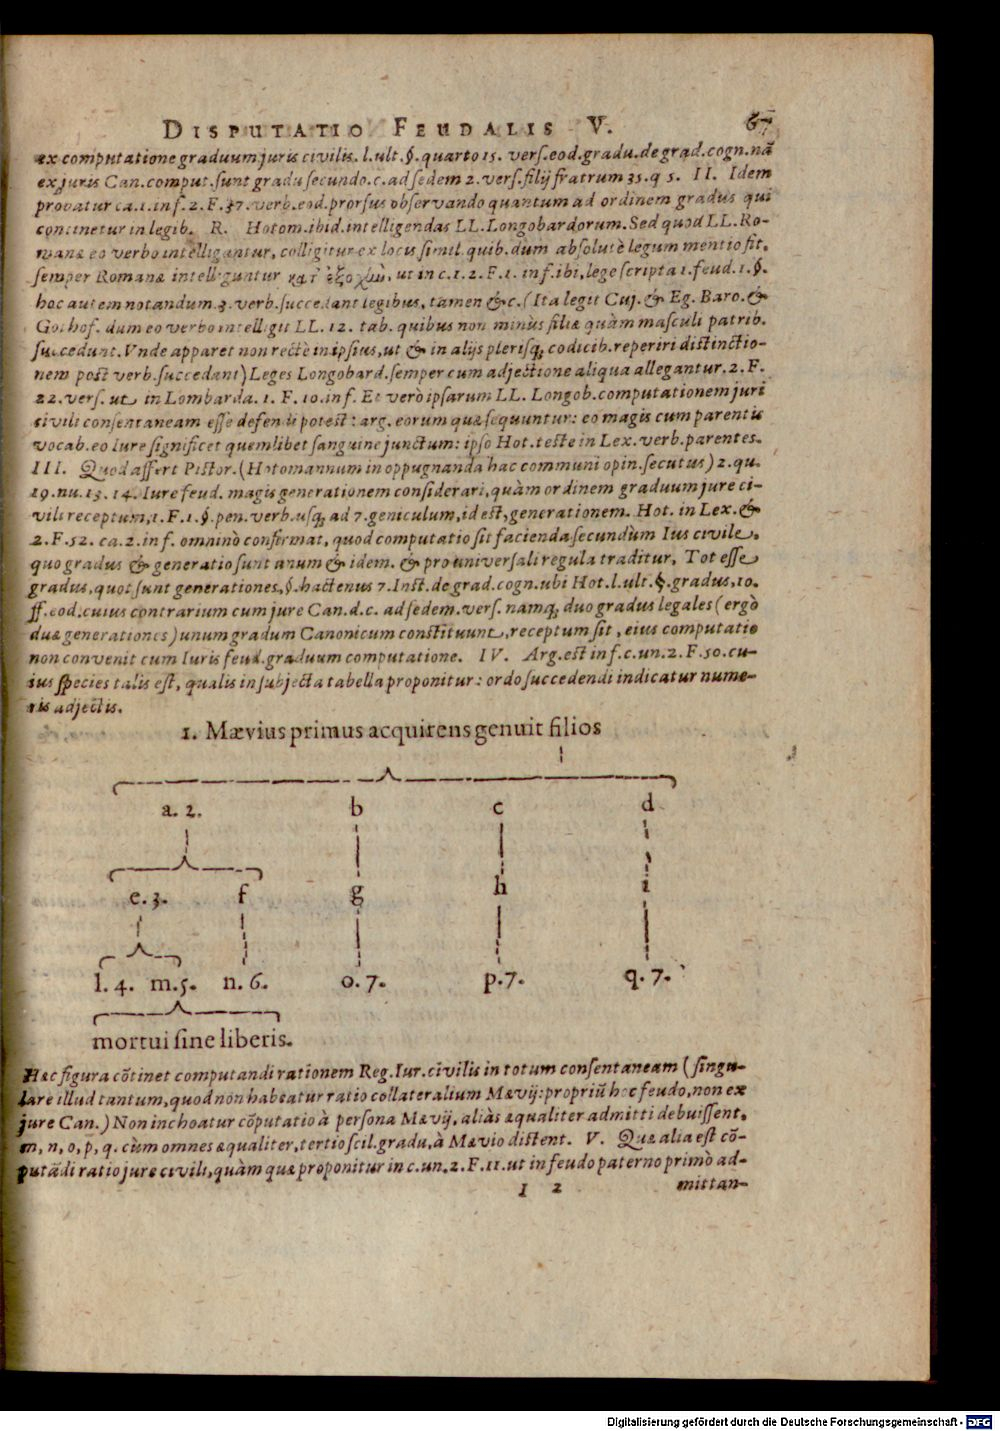 DISPUTATIO FEUDALIS V. 67
ex computatione graduum juris civilis. l.ult.§.quarto 15. vers.eod.gradu.de grad.cogn.nā
ex juris Can.comput.sunt gradu secundo.c.ad sedem 2.vers.filij fratrum 35.q 5. II. Idem
probatur ca.1.inf.2.F.37.verb.eod.prorsus observando quantum ad ordinem gradus qui
continetur in legib. R. Hotom.ibid.intelligendas LL.Longobardorum.Sed quod LL.Ro-
manæ eo verbo intelligantur, colligitur ex locis simil.quib.dum absolutè legum mentio fit.
semper Romanæ intelliguntur κατ' ἐξοχὴν. ut in c.1.2.F.1. inf.ibi,lege scripta 1.feud.1.§.
hoc autem notandum.3.verb.succedant legibus, tamen &c.(Ita legit Cuj.& Eg. Baro.&
Gothof. dum eo verbo intelligit LL.12. tab. quibus non minùs filiæ quàm masculi patrib.
succedunt.Vnde apparet non rectè in ipsius,ut & in alijs plerisq; codicib.reperiri distinctio-
nem post verb.succedant) Leges Longobard.semper cum adjectione aliqua allegantur.2.F.
22.vers. ut in Lombarda. 1. F. 10.inf. Et verò ipsarum LL. Longob.computationem juri
civili consentaneam esse defendi potest: arg. eorum quæ sequuntur: eo magis cum parentis
vocab.eo Iure significet quemlibet sanguine junctum: ipso Hot.teste in Lex.verb.parentes.
III. Quod affert Pistor.(Hotomannum in oppugnanda hac communi opin.secutus) 2.qu.
19.nu.13. 14. Iure feud. magis generationem considerari,quàm ordinem graduum jure ci-
vili receptum,1.F.1.§.pen.verb.usq; ad 7.geniculum,id est,generationem. Hot. in Lex.&
2.F.52. ca.2.inf. omninò confirmat, quod computatio sit facienda secundùm Ius civile.
quo gradus & generatio sunt unum & idem. & pro universali regula traditur, Tot esse
gradus,quot sunt generationes,§.hactenus 7.Inst.de grad.cogn.ubi Hot.l.ult.§.gradus,10.
ff.eod.cuius contrarium cum jure Can.d.c. ad sedem.vers. namq; duo gradus legales (ergò
duæ generationes) unum gradum Canonicum constituunt,receptum sit, eius computatio
non convenit cum Iuris feud.graduum computatione. IV. Arg.est inf.c.un.2.F.50.cu-
ius species talis est, qualis in subjecta tabella proponitur: ordo succedendi indicatur nume-
ris adjectis.
1. Mævius primus acquirens genuit filios
a. 2. b c d
e.3. f g h i
l.4. m.5. n.6. o.7. p.7. q.7.
mortui sine liberis.
Hæc figura cōtinet computandi rationem Reg.Iur.civilis in totum consentaneam (singu-
lare illud tantum,quod non habeatur ratio collateralium Mævij:propriū hoc feudo,non ex
jure Can.) Non inchoatur cōputatio à persona Mævij, aliàs æqualiter admitti debuissent,
m, n, o, p, q. cùm omnes æqualiter,tertio scil.gradu,à Mævio distent. V. Quæ alia est cō-
putādi ratio jure civili,quàm quæ proponitur in c.un.2.F.11.ut in feudo paterno primò ad-
I 2 mittan-
Digitalisierung gefördert durch die Deutsche Forschungsgemeinschaft - DFG